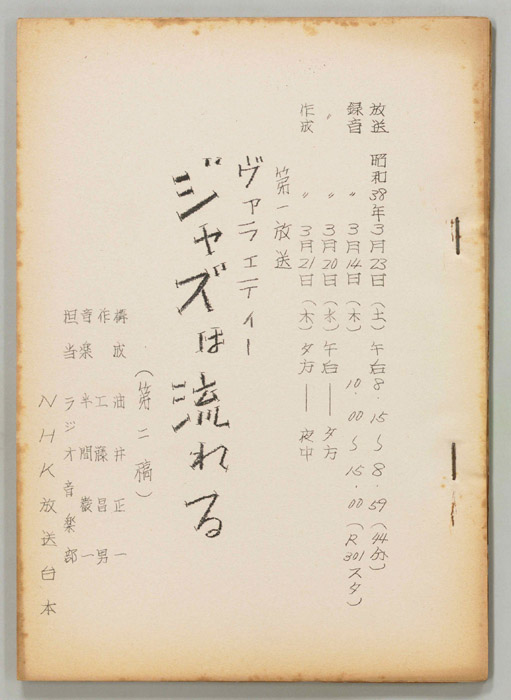 放送 昭和38年3月23日(土)午后8.15〜8.59(44分)
録音 〃 3月14日(木) 10.00〜15.00(R301スタ)
〃 〃 3月20日(水)午后——夕方
作成 〃 3月21日(木)夕方——夜中
第一放送
ヴァラエティー
ジャズは流れる
(第二稿)
構成 油井正一
作 工藤昌男
音楽 半間巌一
担当 ラジオ音楽部
NHK放送台本